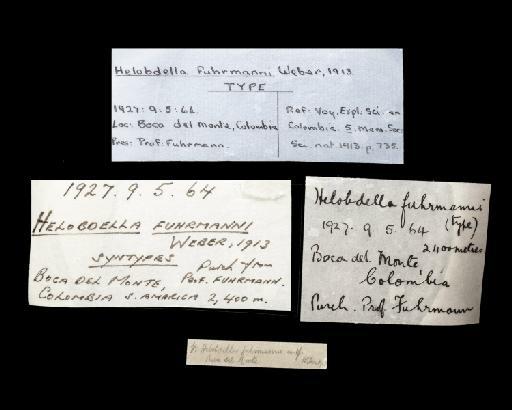 Helobdella Fuhrmanni Weber, 1913
TYPE
1927.9.5.64
Loc: Boca del Monte, Colombia
Pres: Prof. Fuhrmann.
Ref: Voy. Expl. Sci. en
Colombie. 5. Mem. Soc.
Sci. nat 1913. p. 735.
1927.9.5.64
HELOBDELLA FUHRMANNI
WEBER, 1913
SYNTYPES Purch from
BOCA DEL MONTE, PROF. FUHRMANN.
COLOMBIA S. AMERICA 2,400 m.
Helobdella fuhrmanni
1927.9.5.64 (type)
2400 metres
Boca del Monte
Colombia
Purch. Prof. Fuhrmann
Helobdella fuhrmanni
Boca del Monte